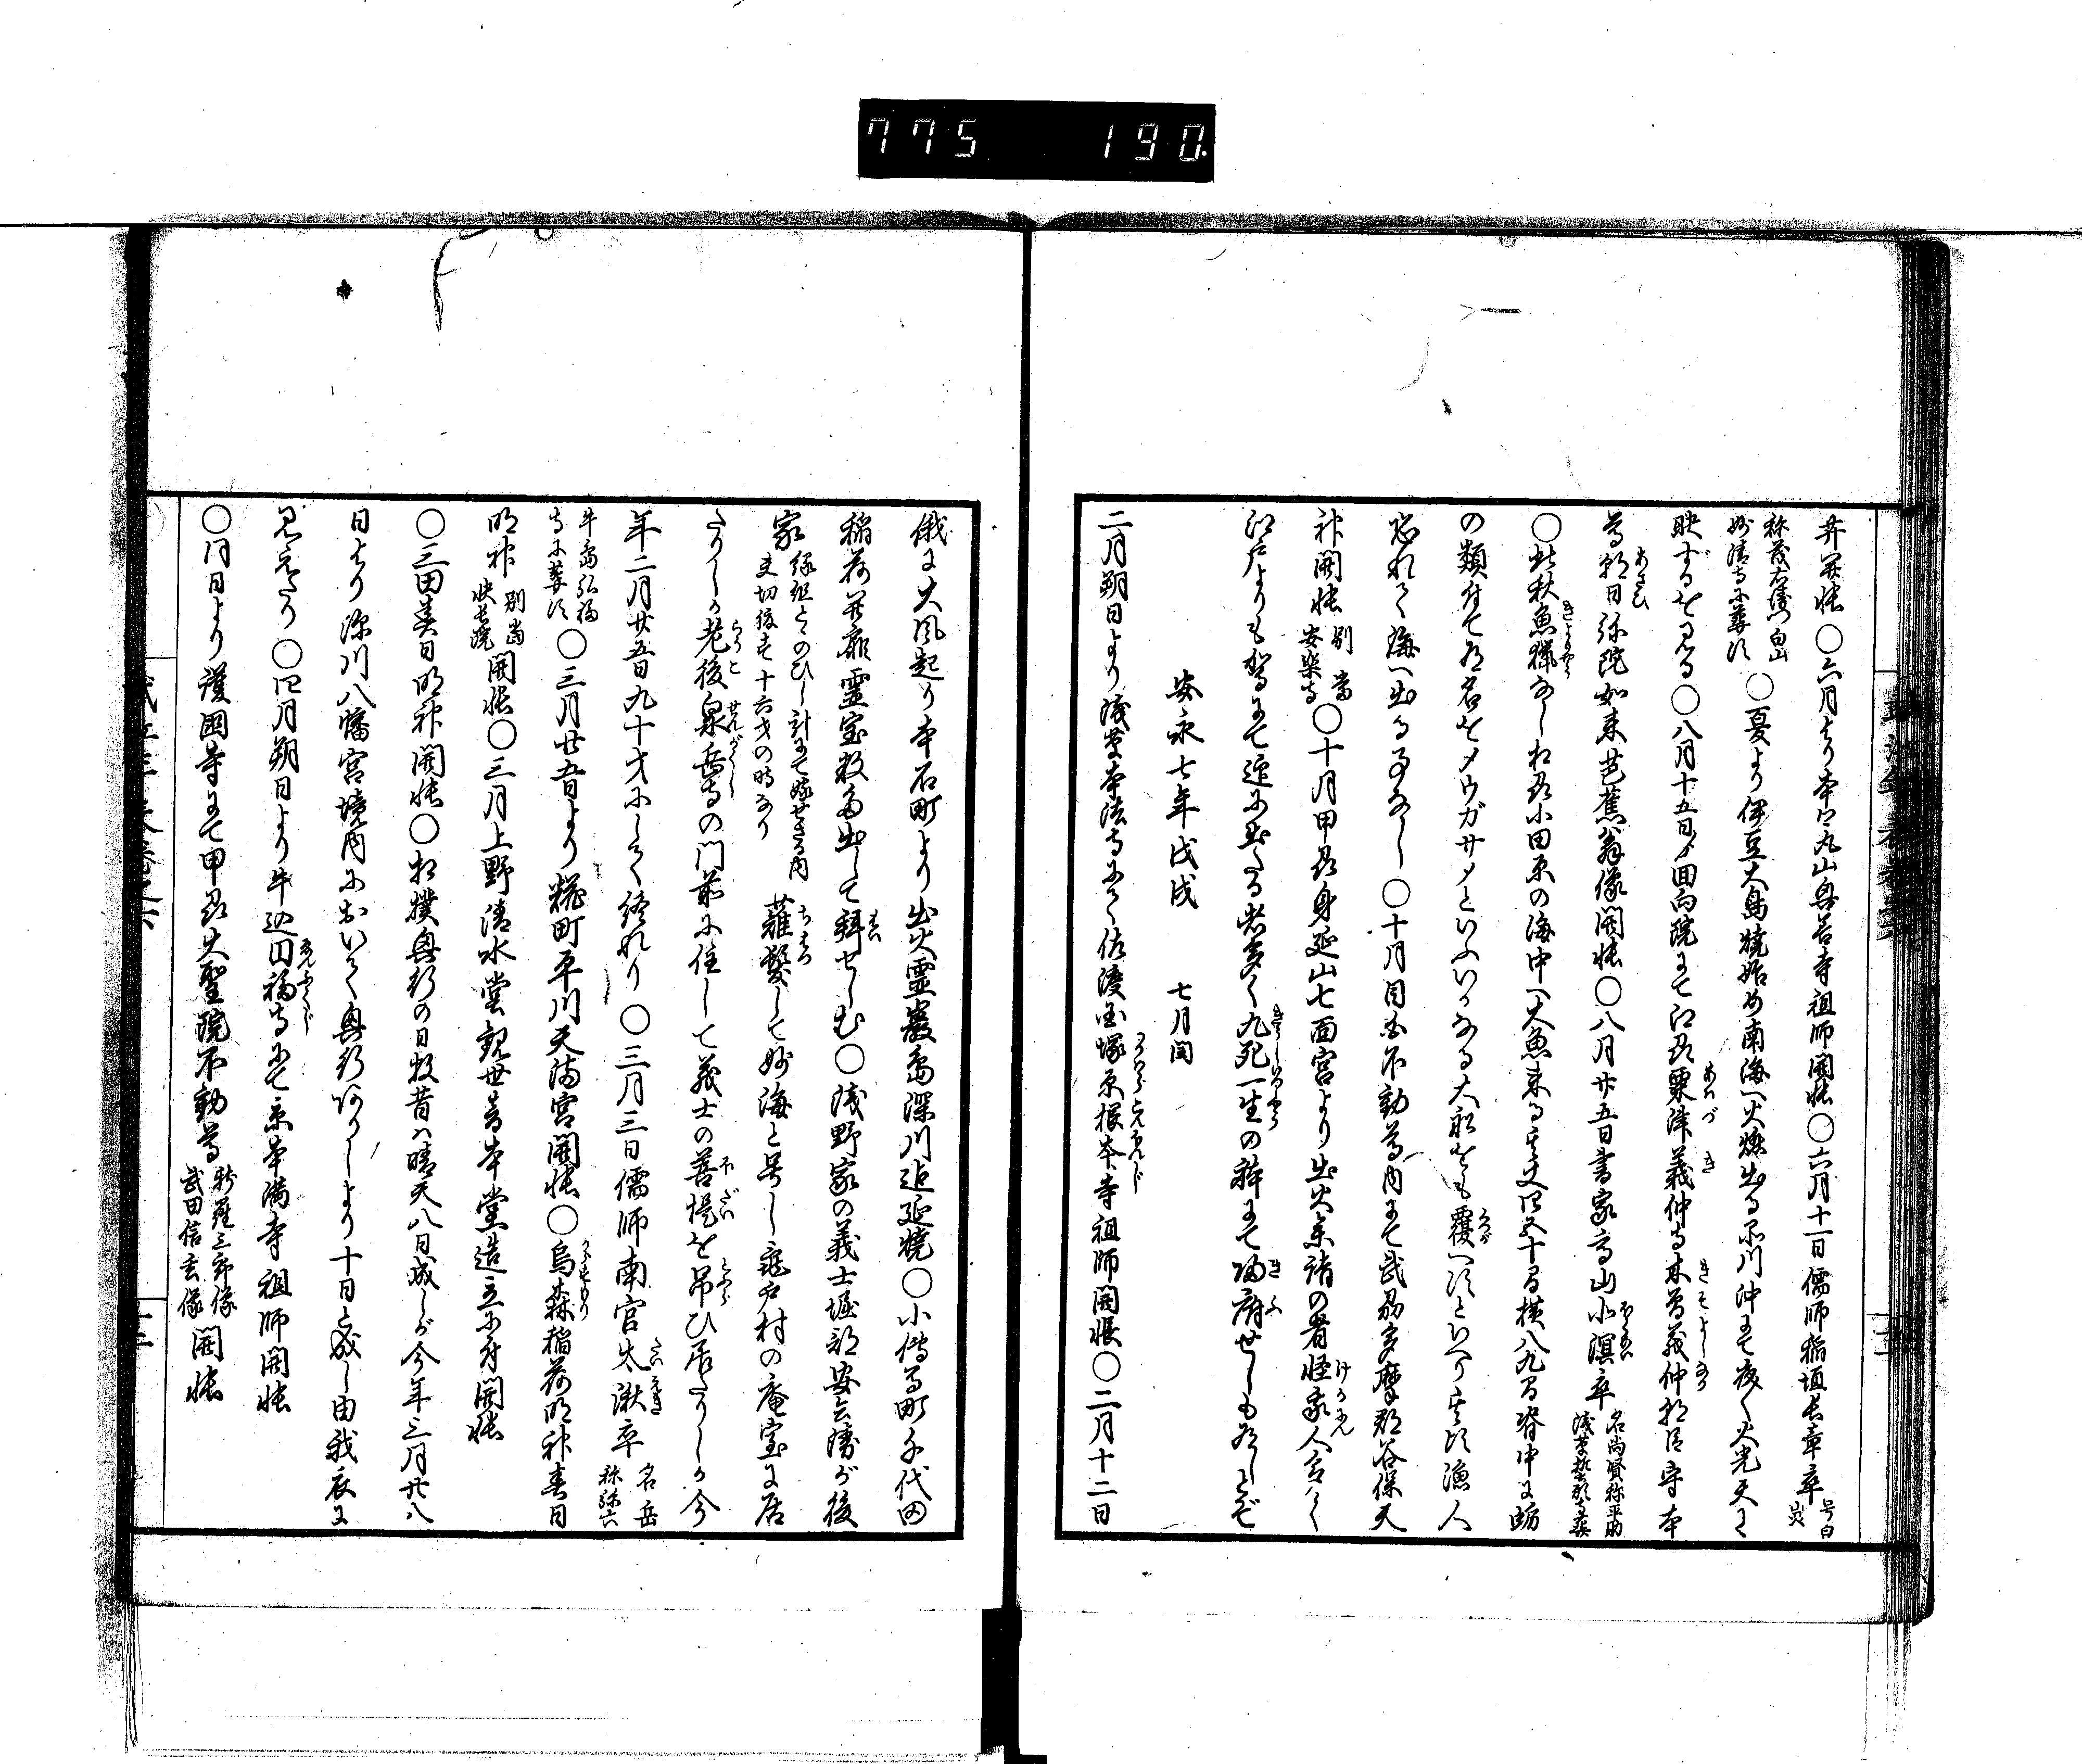 775 190.
弁開帳〇六月より本所丸山興善寺祖師開帳〇六月十一日儒師稲垣長章卒号白嵓
称茂右衛門白山妙清寺に葬す〇夏より伊豆大島焼始め南海へ火燃出る品川沖にて夜々火光天に
映ずるを見る〇八月十五日ゟ回向院にて江州粟津義仲寺木曽義仲朝臣守本
尊朝日弥陀如来芭蕉翁像開帳〇八月廿五日書家高山小溟卒名尚賢称平助浅草
〇此秋魚猟なし相州小田原の海中へ大魚来る其丈四五十間横八九間脊中に蛎
の類付て名をメウガサメといふいかなる大船をも覆へすといへり其頃漁人
恐れて海へ出る事なし〇十月目白不動尊内にて武州多摩郡谷保天
神開帳別当安楽寺〇十月甲州身延山七面宮より出火参詣の者怪我人多く
江戸よりも登りて逗に出たる者多く九死一生の体にて帰府せしも有しとぞ
安永七年戊戌 七月閏
二月朔日より浅草本法寺にて佐渡国塚原根本寺祖師開帳〇二月十二日
俄に大風起り本石町より出火霊巌島深川迄延焼〇小伝馬町千代田
稲荷開扉霊宝数多出して拝せしむ〇浅野家の義士堀部安兵衛が後
家縁組とゝのひし計にて嫁せざる内夫切腹す十六才の時なり薙髪して妙海と号し亀戸村の庵室に居
たりしが老後泉岳寺の門前に住して義士の菩提を吊ひ居たりしが今
年二月廿五日九十才にして終れり〇三月三日儒師南宮大湫卒名岳称弥六
牛島弘福寺に葬す〇三月廿五日より糀町平川天満宮開帳〇烏森稲荷明神春日
明神別当快長院開帳〇三月上野清水堂観世音本堂造立に付開帳
〇三田春日明神開帳〇相撲興行の日数昔は晴天八日成しが今年三月廿八
日より深川八幡宮境内において興行ありしより十日と成し由我衣に
見えたり〇四月朔日より牛込円福寺にて京本満寺祖師開帳
〇同日より護国寺にて甲州大聖院不動尊新羅三郎像武田信玄像開帳